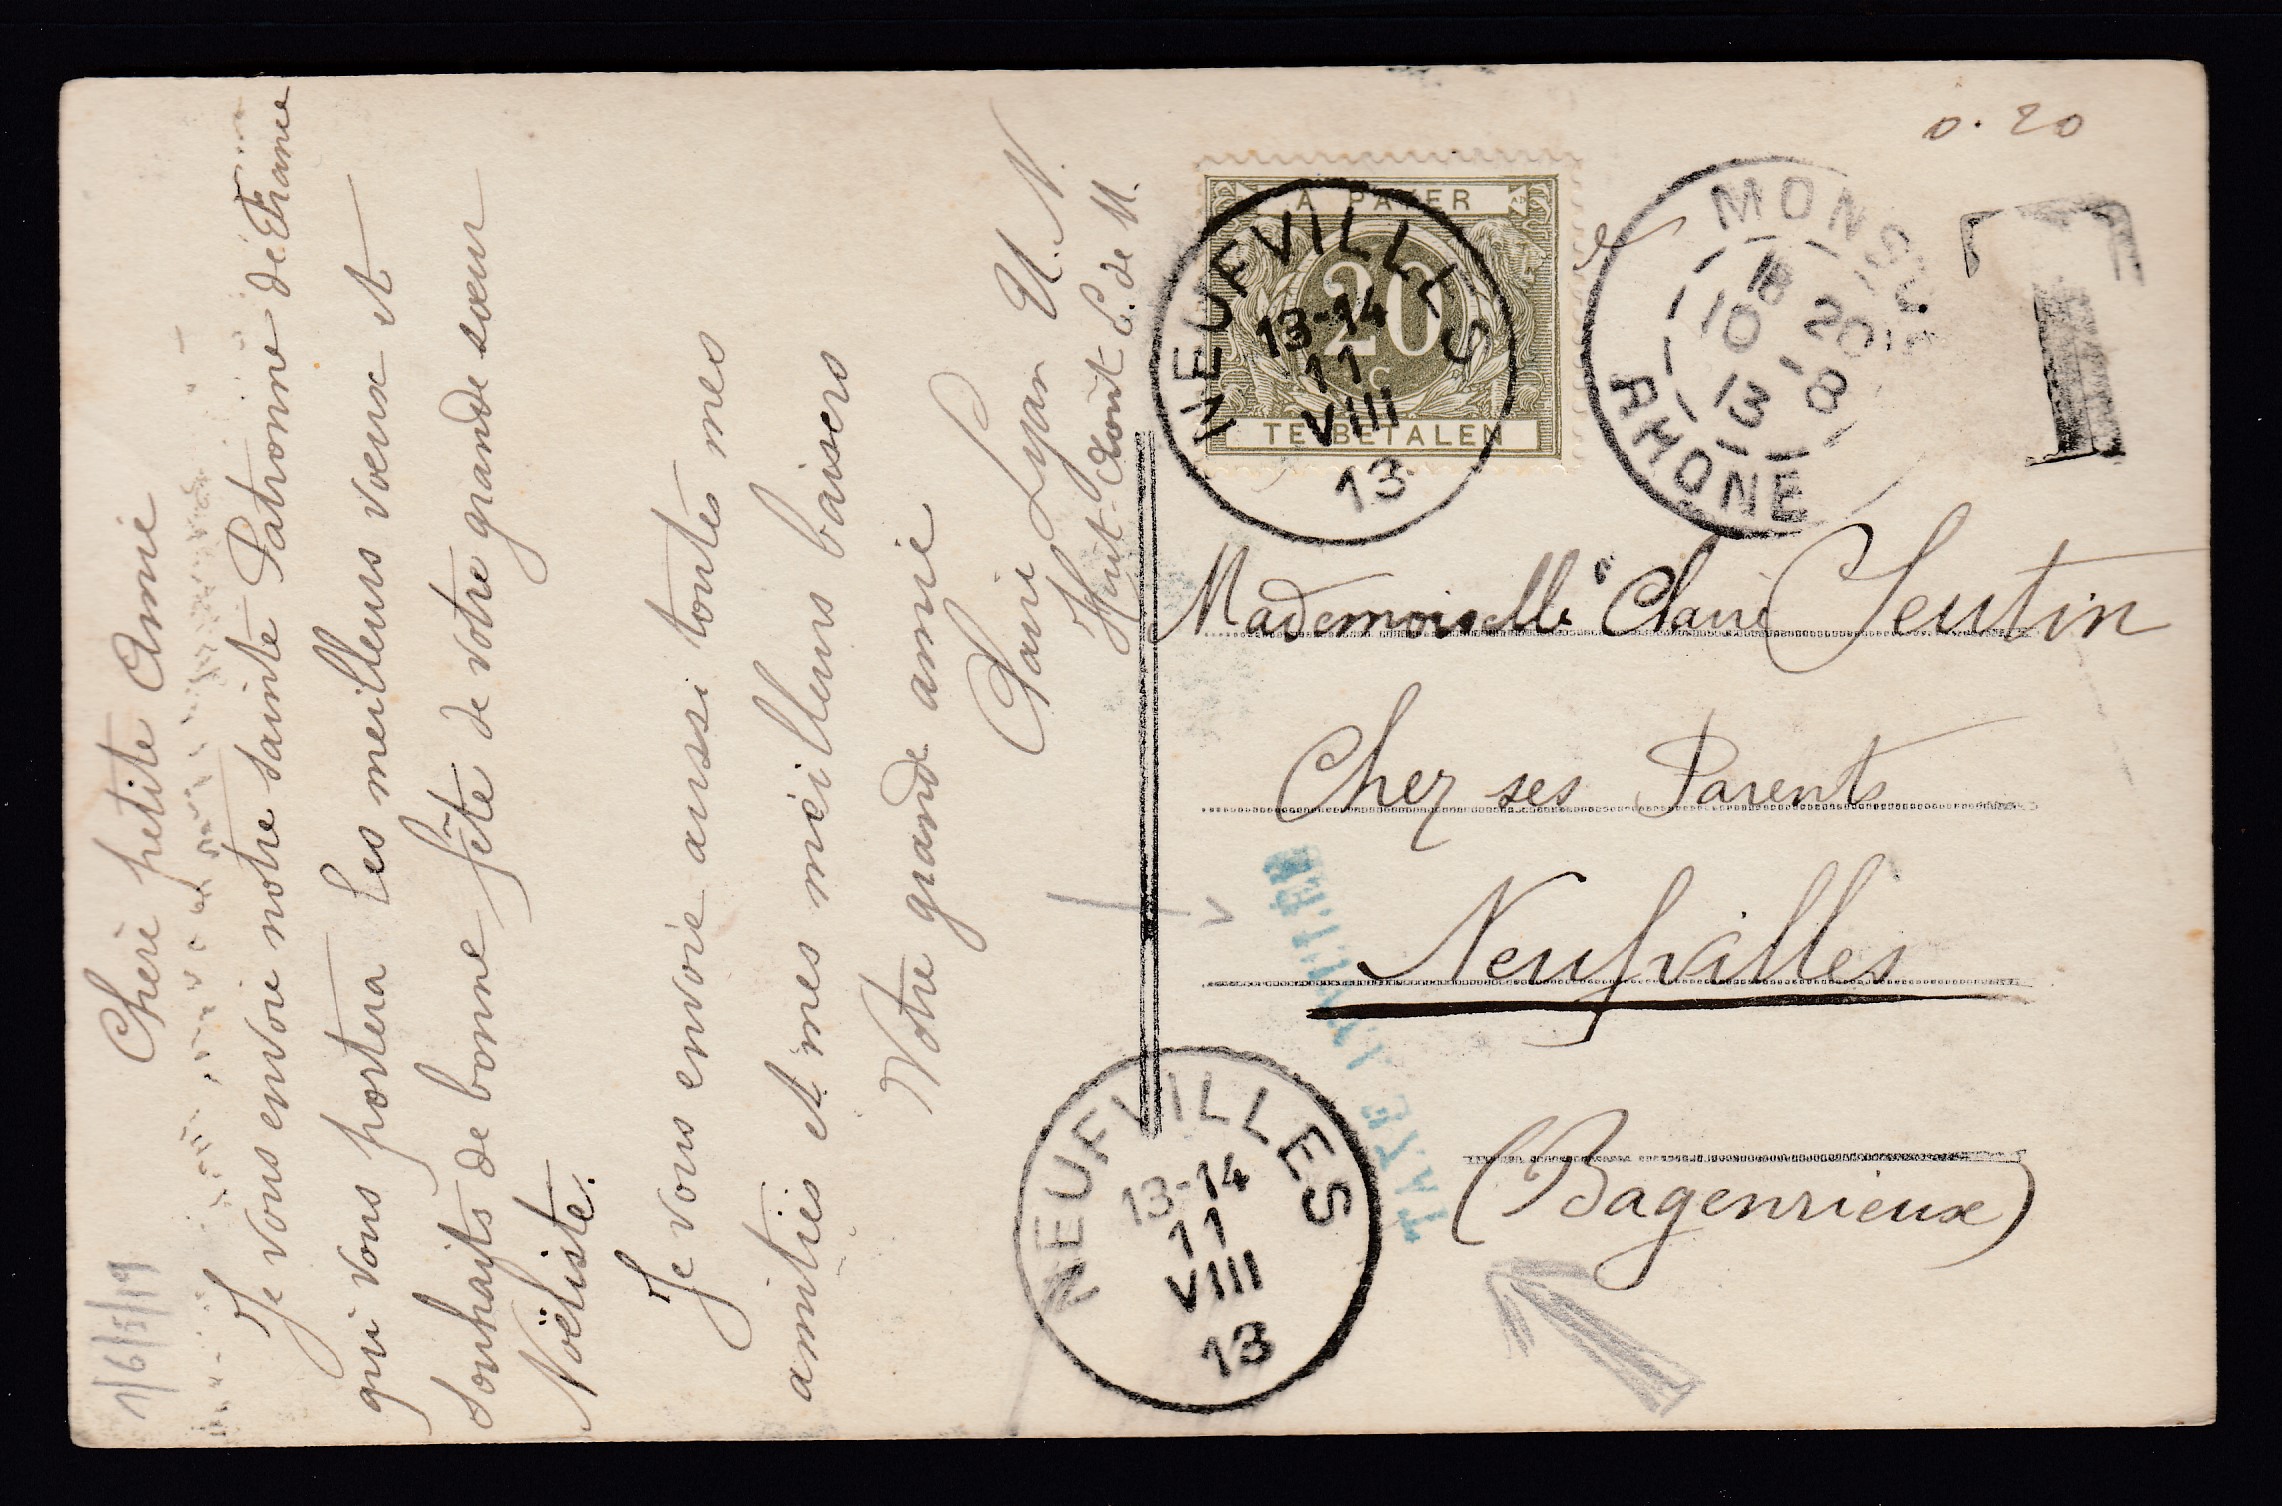 Chère petite Amie
Je vous envoie notre sainte Patronne de France
qui vous portera les meilleurs vœux et
souhaits de bonne fête de votre grande sœur
Noëliste.
Je vous envoie aussi toutes mes
amitiés et mes meilleurs baisers
Votre grande amie
Claire Lyan U. N.
Haut- dont C. de M.
1/6/3/19
0.20
A PAYER
20
C
TE BETALEN
NEUFVILLES
13-14
11
VIII
13
MONSOLS
RHONE
18 20
10 -8
13
T
Mademoiselle Claire Seutin
Chez ses Parents
Neufvilles
(Bagenrieux)
TAXE INVITEE
NEUFVILLES
13-14
11
VIII
13